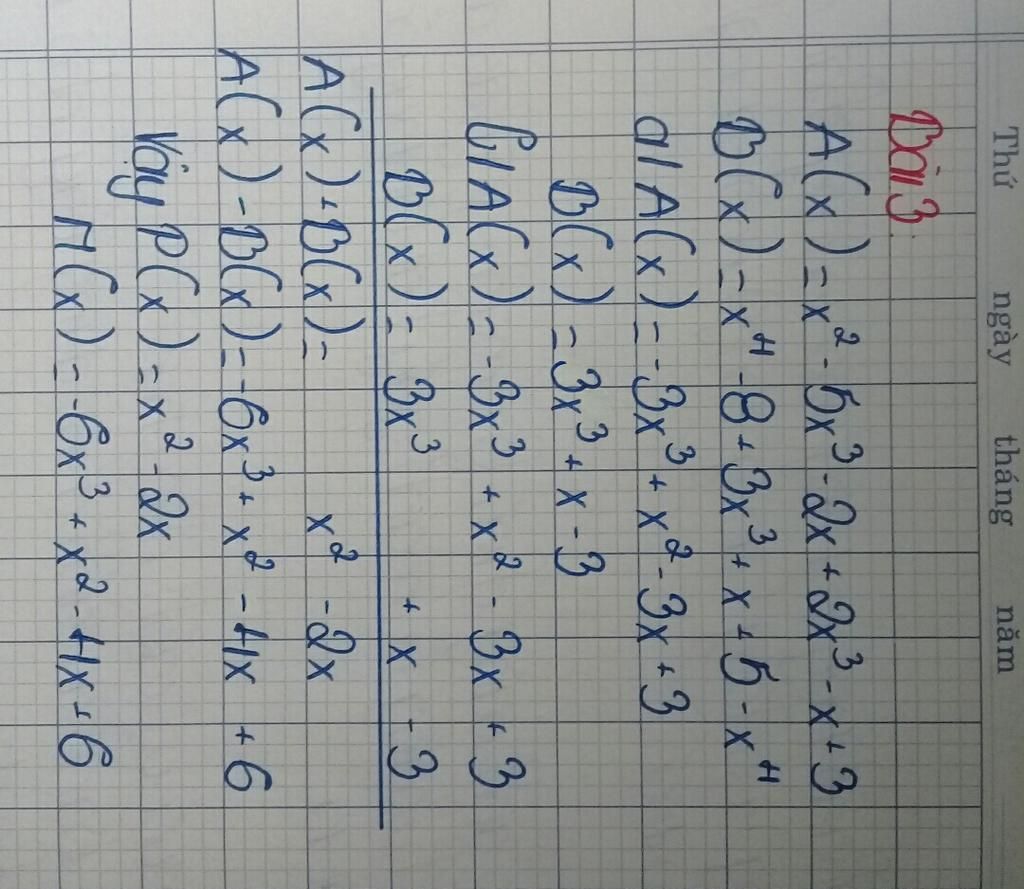 Thứ ngày tháng năm
Bài 3:
A(x) = x² - 5x³ - 2x + 2x³ - x + 3
B(x) = x⁴ - 8 + 3x³ + x + 5 - x⁴
a/ A(x) = -3x³ + x² - 3x + 3
B(x) = 3x³ + x - 3
b/ A(x) = -3x³ + x² - 3x + 3
B(x) = 3x³ + x - 3
A(x) + B(x) = x² - 2x
A(x) - B(x) = -6x³ + x² - 4x + 6
Vậy P(x) = x² - 2x
M(x) = -6x³ + x² - 4x + 6